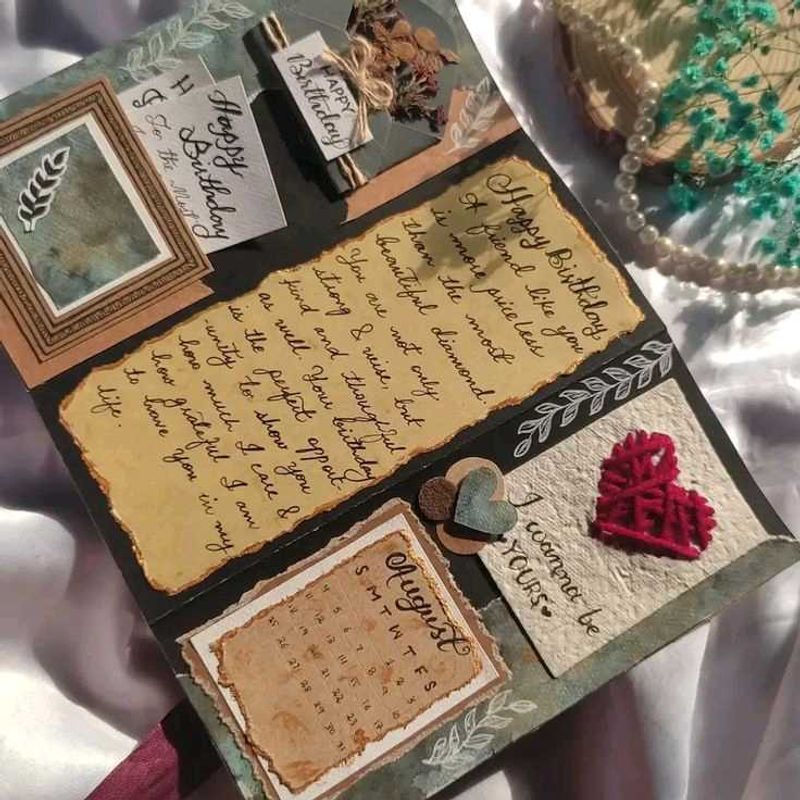 Happy
Birthday
To the Most
HAPPY
Birthday
Happy Birthday
A friend like you
is more priceless
than the most
beautiful diamond
You are not only
strong & wise, but
kind and thoughtful
as well. Your birthday
is the perfect opport-
unity to show you
how much I care &
how grateful I am
to have you in my
life.
August
S M T W T F S
1 2 3
4 5 6 7 8 9 10
11 12 13 14 15 16 17
18 19 20 21 22 23 24
25 26 27 28 29 30 31
I wanna be
YOURS♥